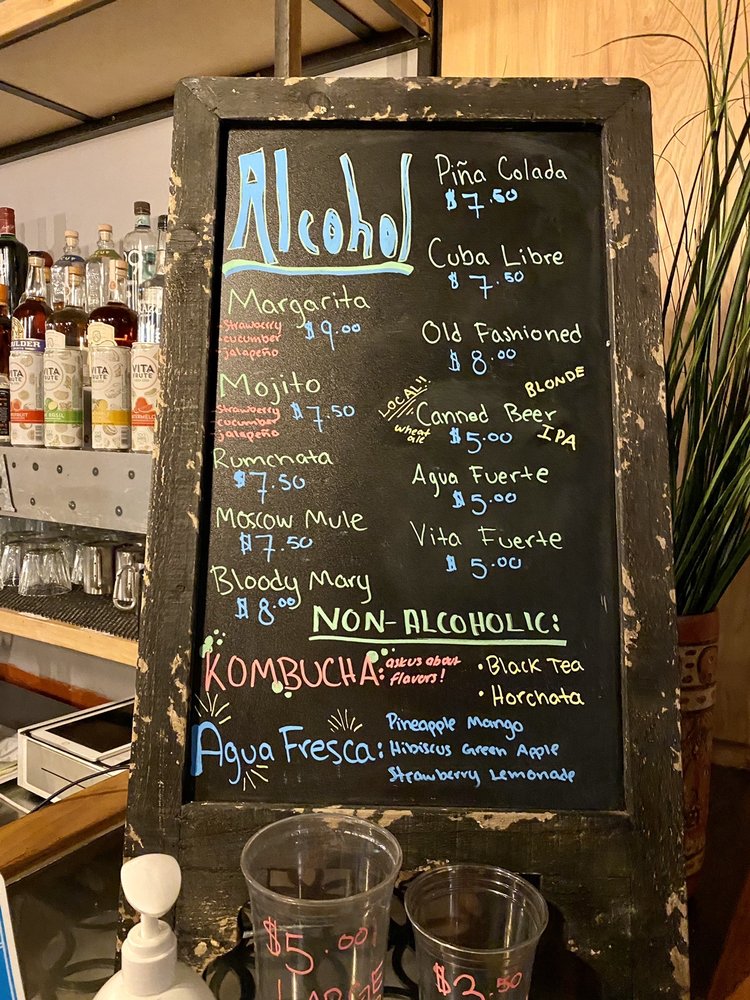 Alcohol
Margarita
strawberry
cucumber
jalapeño
$9.00
Mojito
strawberry
cucumber
jalapeño
$7.50
Rumchata
$7.50
Moscow Mule
$7.50
Bloody Mary
$8.00
Piña Colada
$7.50
Cuba Libre
$7.50
Old Fashioned
$8.00
LOCAL!!
Canned Beer
wheat ale
BLONDE
IPA
$5.00
Agua Fuerte
$5.00
Vita Fuerte
$5.00
NON-ALCOHOLIC:
KOMBUCHA: ask us about
flavors!
• Black Tea
• Horchata
Agua Fresca:
Pineapple Mango
Hibiscus Green Apple
Strawberry Lemonade
$5.00
LARGE
$3.50
VITA
FRUTE
VITA
FRUTE
VITA
FRUTE
VITA
FRUTE